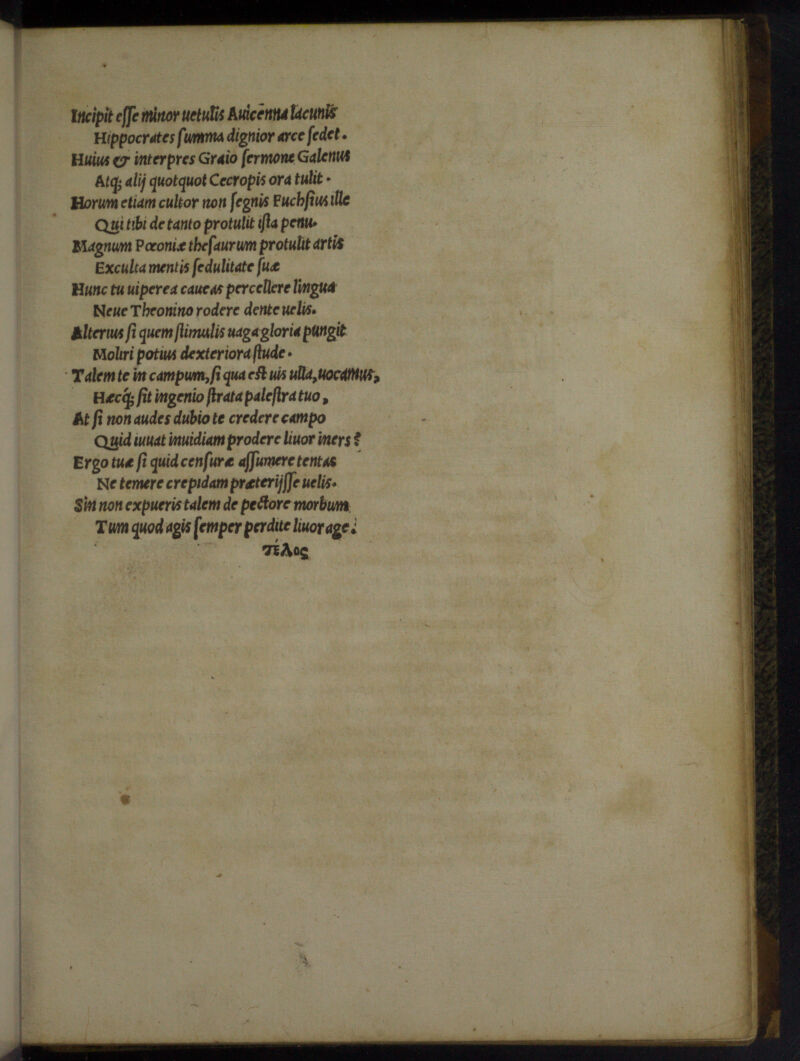 Incipit eſſe minor uetulis Auicenna lacunis
Hippocrates ſumma dignior arce ſedet.
Huius & interpres Graio ſermone Galenus
Atq; alij quotquot Cecropis ora tulit.
Horum etiam cultor non ſegnis Fuchſius ille
Qui tibi de tanto protulit iſta penu.
Magnum Pœoniæ theſaurum protulit artis
Exculta mentis ſedulitate ſuæ
Hunc tu uiperea caueas percellere lingua
Neue Theonino rodere dente uelis.
Alterius ſi quem ſtimulis uaga gloria pungit
Moliri potius dexteriora ſtude.
Talem te in campum, ſi qua eſt uis ulla, uocamus,
Hæcq; ſit ingenio ſtrata paleſtra tuo,
At ſi non audes dubio te credere campo
Quid iuuat inuidiam prodere liuor iners?
Ergo tuæ ſi quid cenſuræ aſſumere tentas
Ne temere crepidam præterijſſe uelis.
Sin non expueris talem de pectore morbum
Tum quod agis ſemper perdite liuor age.
τέλος